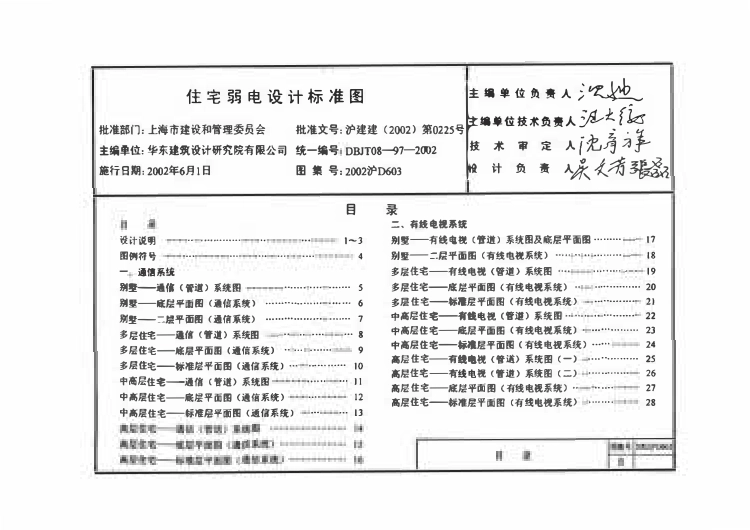 住宅弱电设计标准图
批准部门: 上海市建设和管理委员会 批准文号: 沪建建 (2002) 第0225号
主编单位: 华东建筑设计研究院有限公司 统一编号: DBJT08—97—2002
施行日期: 2002年6月1日 图集号: 2002沪D603
主编单位负责人
主编单位技术负责人
技术审定人
设计负责人
目 录
目 录
设计说明 1~3
图例符号 4
一、通信系统
别墅——通信 (管道) 系统图 5
别墅——底层平面图 (通信系统) 6
别墅——二层平面图 (通信系统) 7
多层住宅——通信 (管道) 系统图 8
多层住宅——底层平面图 (通信系统) 9
多层住宅——标准层平面图 (通信系统) 10
中高层住宅——通信 (管道) 系统图 11
中高层住宅——底层平面图 (通信系统) 12
中高层住宅——标准层平面图 (通信系统) 13
高层住宅——通信 (管道) 系统图 14
高层住宅——底层平面图 (通信系统) 15
高层住宅——标准层平面图 (通信系统) 16
二、有线电视系统
别墅——有线电视 (管道) 系统图及底层平面图 17
别墅——二层平面图 (有线电视系统) 18
多层住宅——有线电视 (管道) 系统图 19
多层住宅——底层平面图 (有线电视系统) 20
多层住宅——标准层平面图 (有线电视系统) 21
中高层住宅——有线电视 (管道) 系统图 22
中高层住宅——底层平面图 (有线电视系统) 23
中高层住宅——标准层平面图 (有线电视系统) 24
高层住宅——有线电视 (管道) 系统图 (一) 25
高层住宅——有线电视 (管道) 系统图 (二) 26
高层住宅——底层平面图 (有线电视系统) 27
高层住宅——标准层平面图 (有线电视系统) 28
目 录
图集号
页